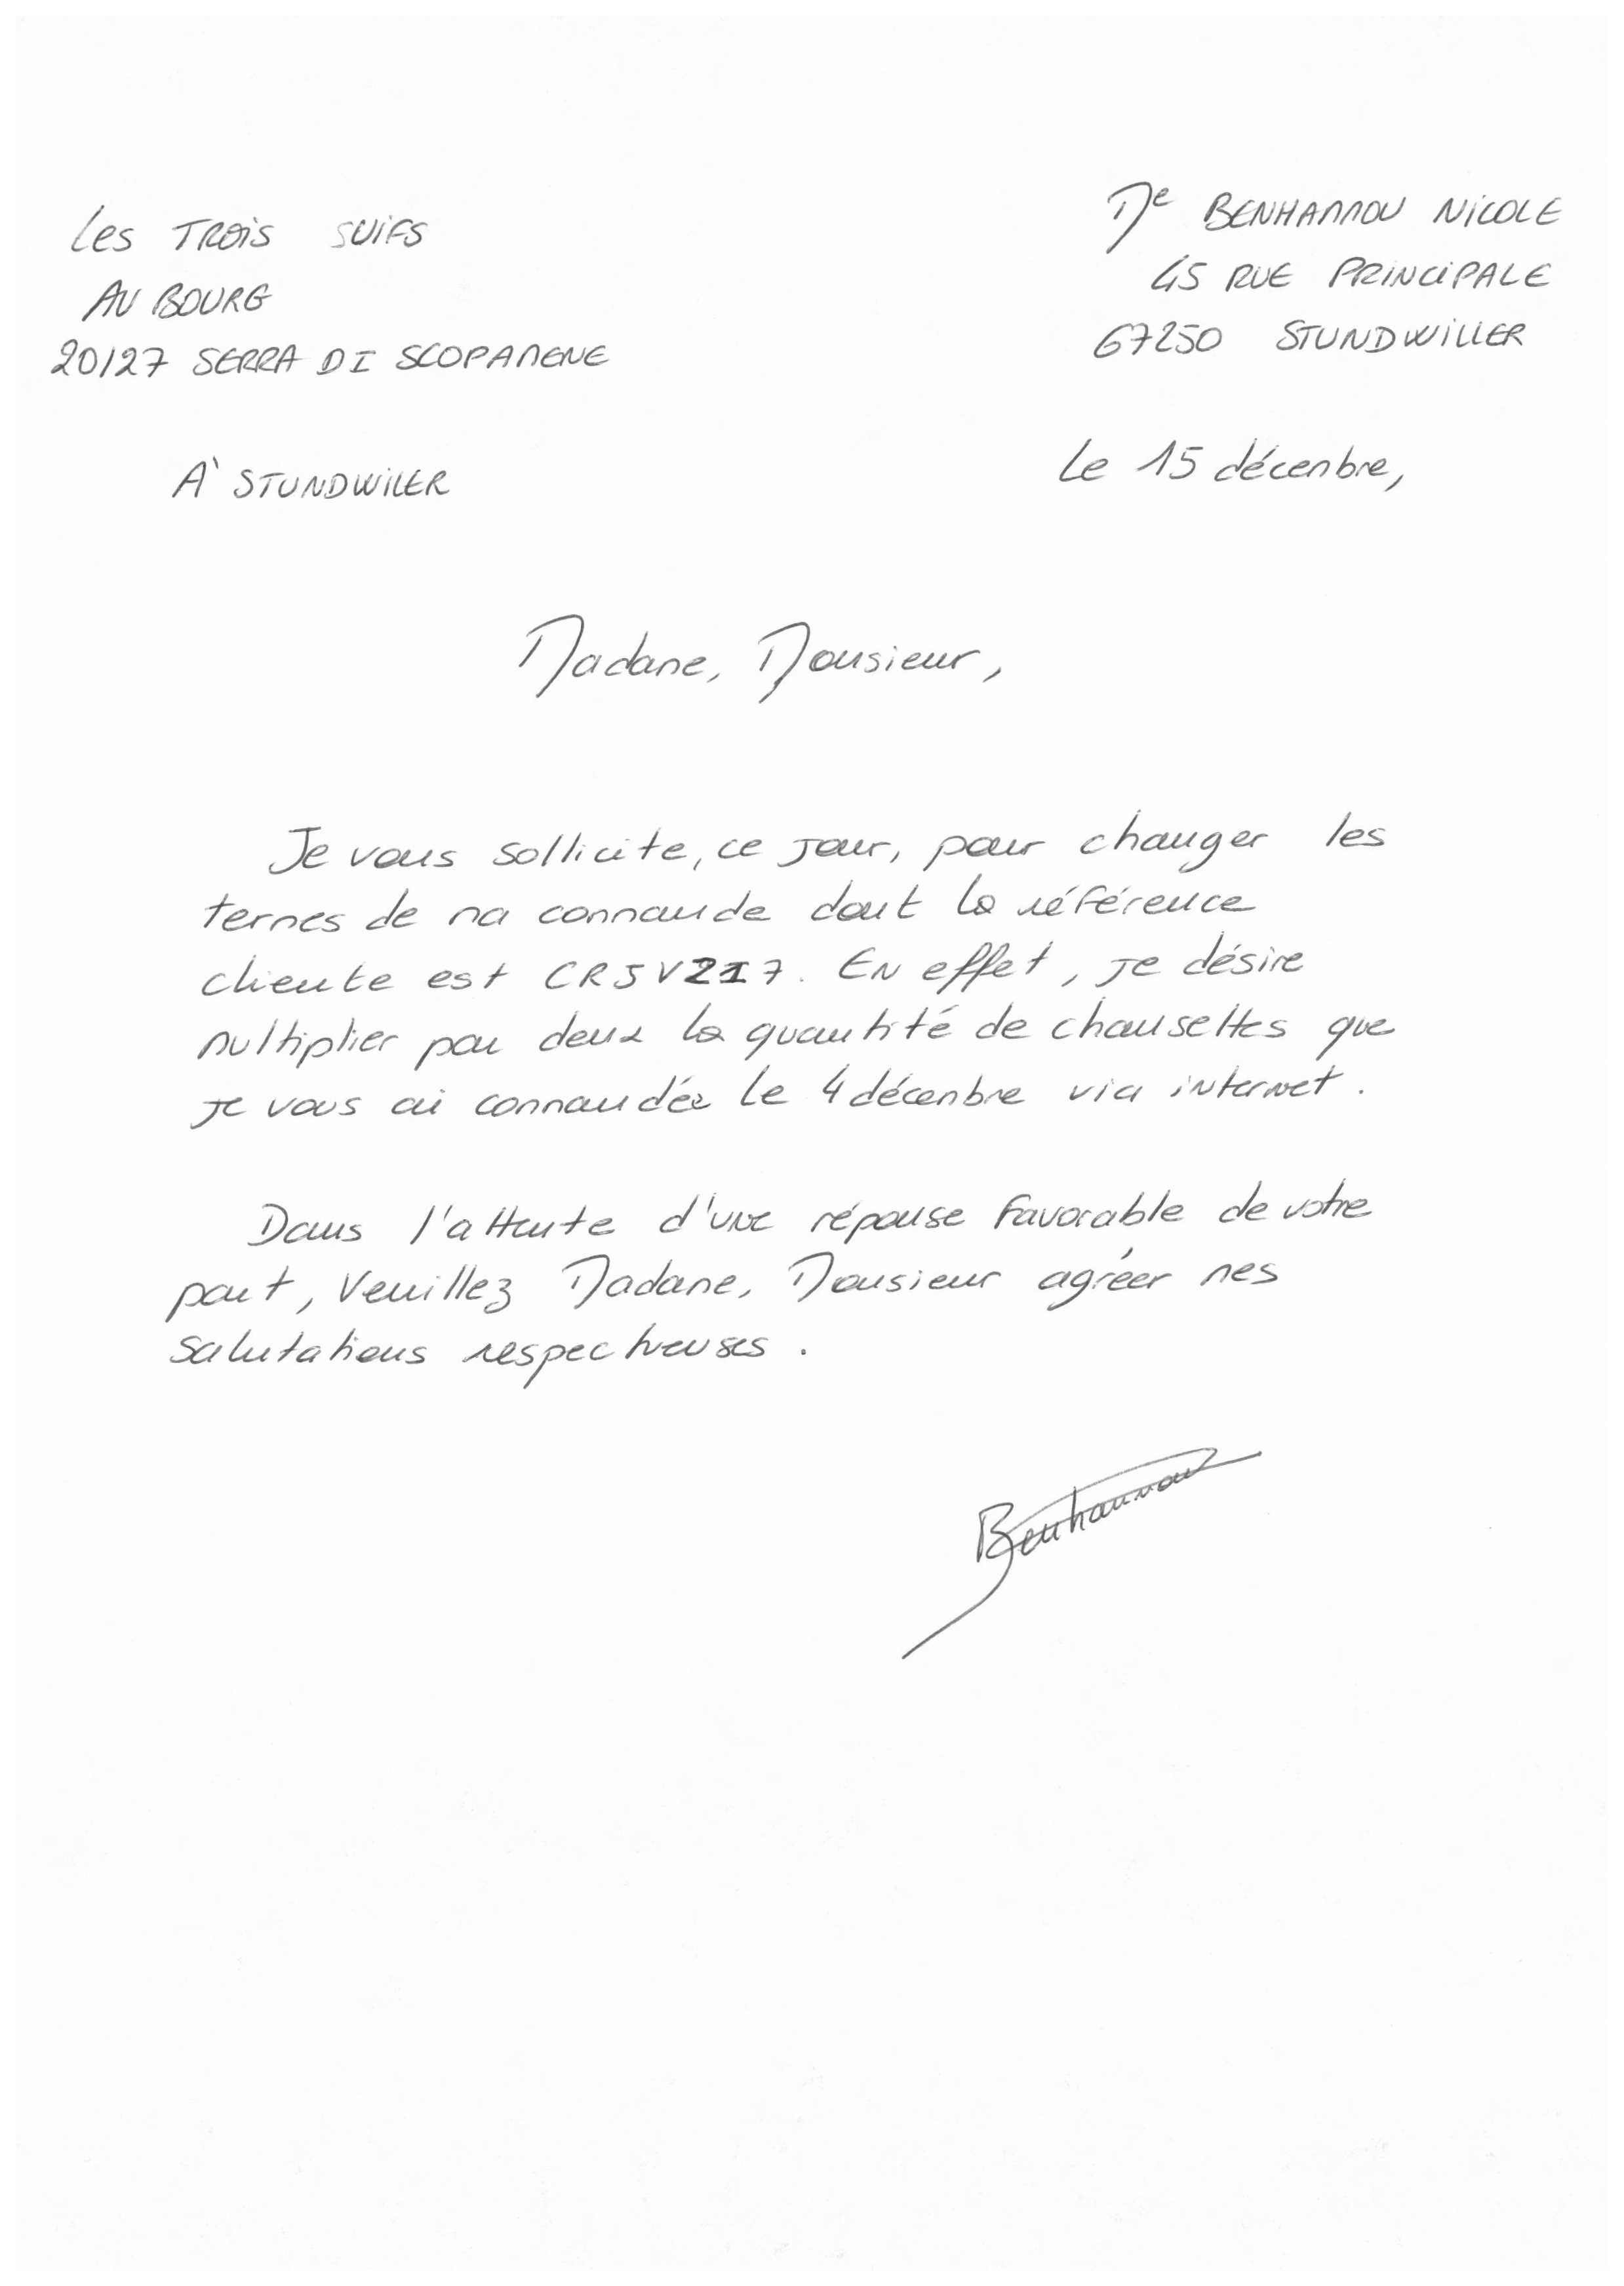 Les TROIS SUIFS
AU BOURG
20127 SERRA DI SCOPAMENE
Me BENHAMMOU NICOLE
45 RUE PRINCIPALE
67250 STUNDWILLER
À STUNDWILLER
Le 15 décembre,
Madame, Monsieur,
Je vous sollicite, ce jour, pour changer les
termes de ma commande dont la référence
cliente est CRJV217. En effet, je désire
multiplier par deux la quantité de chaussettes que
je vous ai commandée le 4 décembre via internet.
Dans l'attente d'une réponse favorable de votre
part, Veuillez Madame, Monsieur agréer mes
salutations respectueuses.
Benhammou